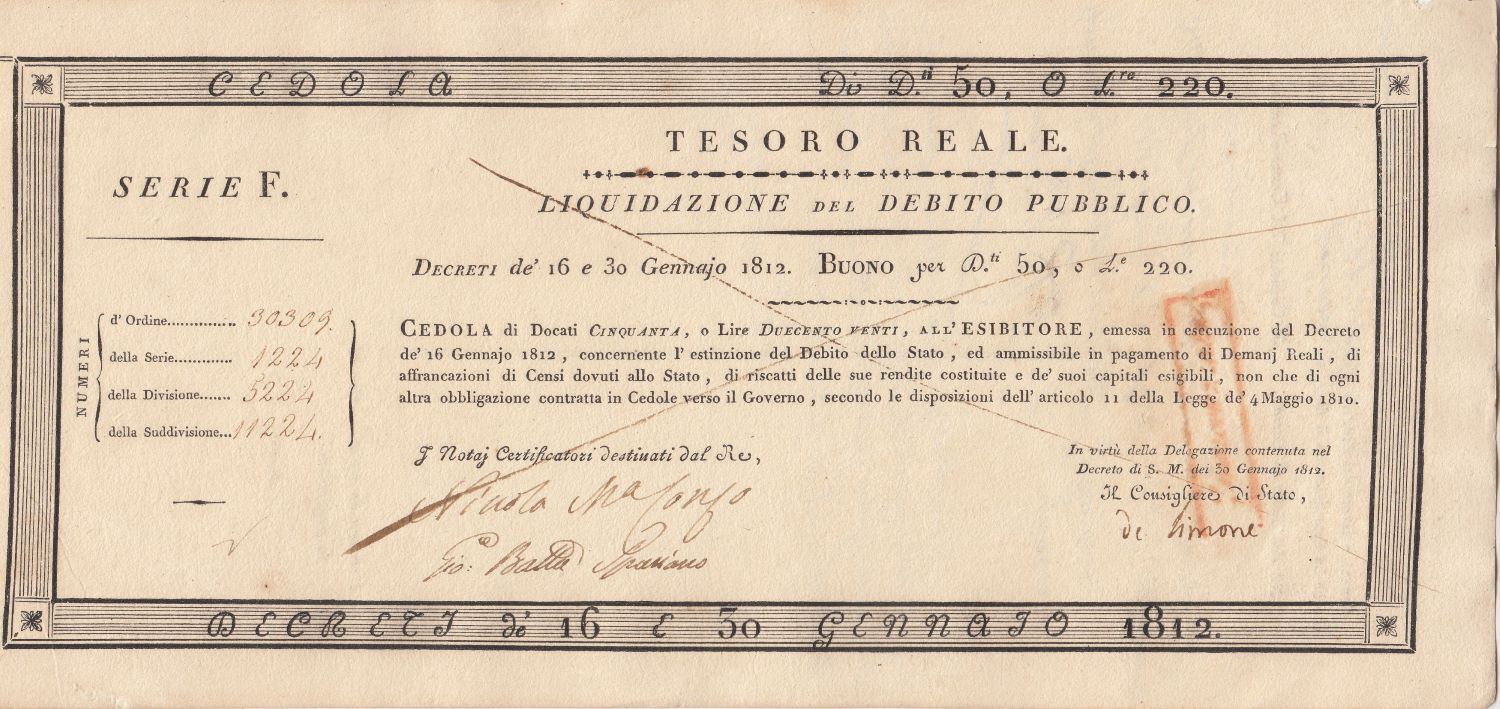 CEDOLA Di D.ti 50, O L.re 220.
TESORO REALE.
SERIE F.
LIQUIDAZIONE DEL DEBITO PUBBLICO.
DECRETI de' 16 e 30 Gennajo 1812. BUONO per D.ti 50, o L.e 220.
NUMERI
d' Ordine.............. 30309.
della Serie............ 1224
della Divisione....... 5224
della Suddivisione... 11224.
CEDOLA di Docati CINQUANTA, o Lire DUECENTO VENTI, ALL'ESIBITORE, emessa in esecuzione del Decreto
de' 16 Gennajo 1812, concernente l' estinzione del Debito dello Stato, ed ammissibile in pagamento di Demanj Reali, di
affrancazioni di Censi dovuti allo Stato, di riscatti delle sue rendite costituite e de' suoi capitali esigibili, non che di ogni
altra obbligazione contratta in Cedole verso il Governo, secondo le disposizioni dell' articolo 11 della Legge de' 4 Maggio 1810.
I Notaj Certificatori destinati dal Re,
Nicola
Gio: Batta
In virtù della Delegazione contenuta nel
Decreto di S. M. dei 30 Gennajo 1812.
Il Consigliere di Stato,
de Simone
DECRETI de' 16 E 30 GENNAIO 1812.